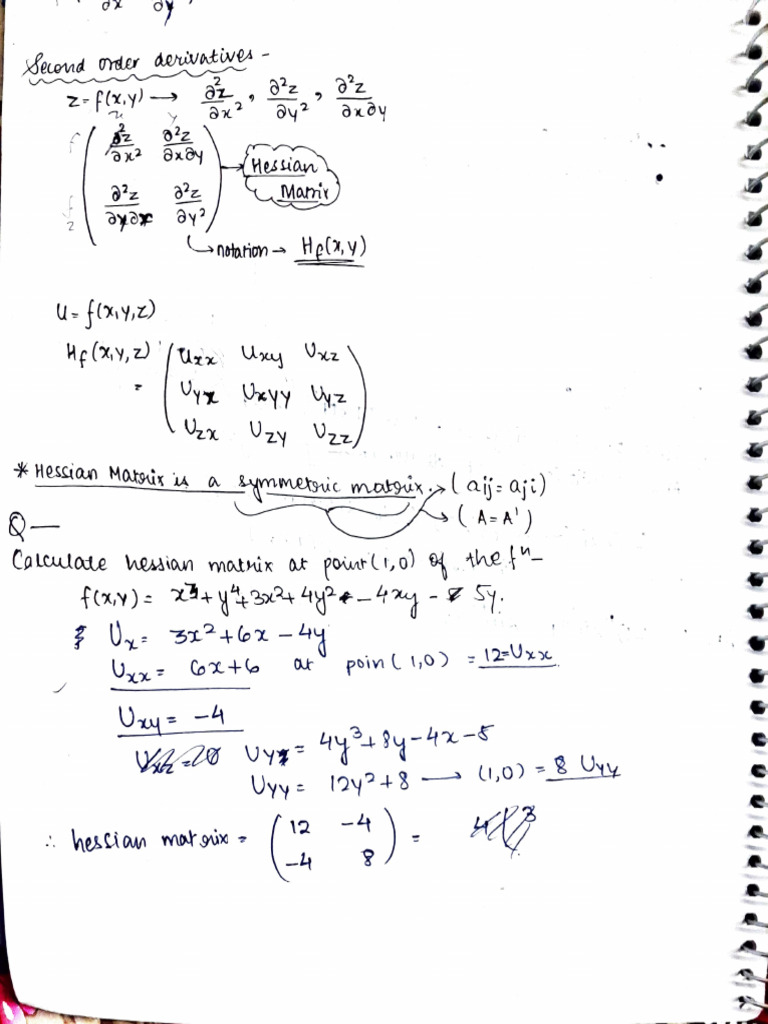 ∂x ∂y
Second order derivatives -
z = f(x,y) → ∂²z/∂x² , ∂²z/∂y² , ∂²z/∂x∂y
x y
f ( ∂²z/∂x² ∂²z/∂x∂y ) → Hessian Matrix
f z ( ∂²z/∂y∂x ∂²z/∂y² )
↳ notation → Hf(x,y)
U = f(x,y,z)
Hf(x,y,z) = ( Uxx Uxy Uxz
Uyx Uxyy Uyz
Uzx Uzy Uzz )
* Hessian Matrix is a symmetric matrix. → ( aij = aji )
→ ( A = A' )
Q —
Calculate hessian matrix at point (1,0) of the fⁿ –
f(x,y) = x³ + y⁴ + 3x² + 4y² - 4xy - 5y.
Ux = 3x² + 6x - 4y
Uxx = 6x + 6 at poin (1,0) = 12 = Uxx
Uxy = -4
Uy = 4y³ + 8y - 4x - 5
Uyy = 12y² + 8 → (1,0) = 8 Uyy
∴ hessian matrix = ( 12 -4
-4 8 ) =